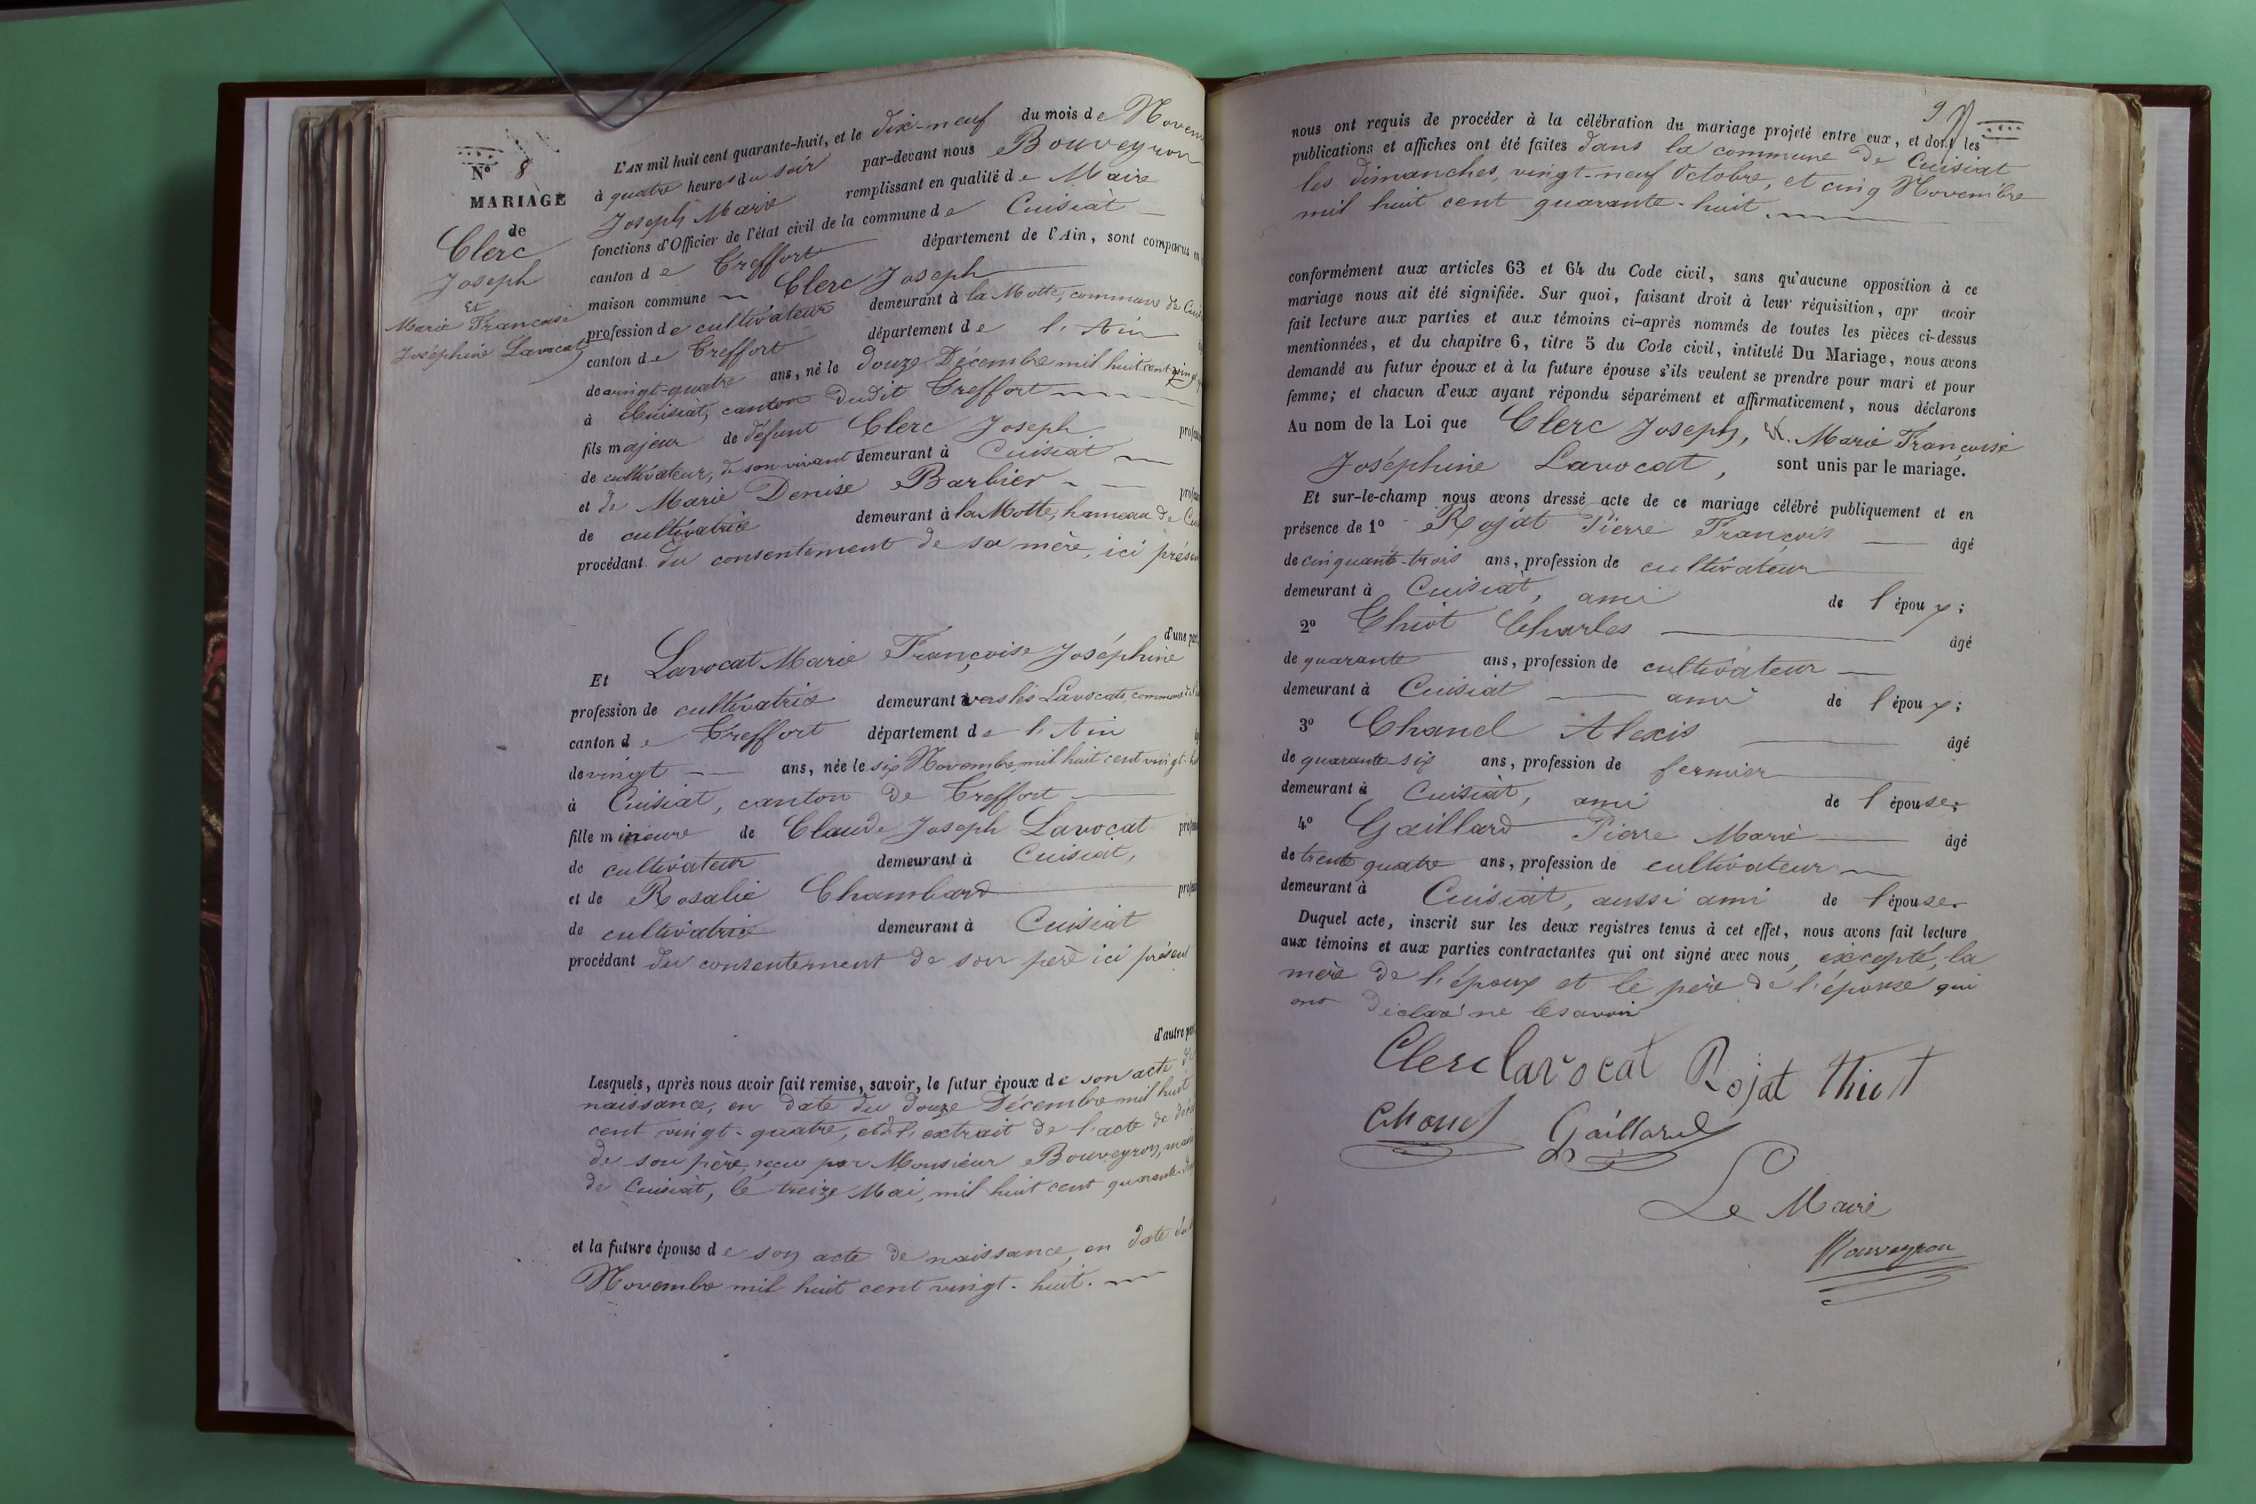 N° 8
MARIAGE
de
Clerc
Joseph
Et
Marie Francoise
Joséphine Lavocat
L'AN mil huit cent quarante-huit, et le dix-neuf du mois de Novem
à quatre heures du soir par-devant nous Bouveyron
Joseph Marie remplissant en qualité de Maire
fonctions d'Officier de l'état civil de la commune de Cuisiat
canton de Treffort département de l'Ain, sont comparus en
maison commune Clerc Joseph
profession de cultivateur demeurant à la Motte, commune de Cuis
canton de Treffort département de l'Ain
de vingt-quatre ans, né le douze Décembre mil huit cent vingt
à Cuisiat, canton dudit Treffort
fils majeur de défunt Clerc Joseph profes
de cultivateur, de son vivant demeurant à Cuisiat
et de Marie Denise Barbier profes
de cultivatrice demeurant à la Motte, hameau de Cui
procédant du consentement de sa mère, ici présen
d'une par
Et Lavocat Marie Françoise Joséphine
profession de cultivatrice demeurant vers les Lavocats, commune de
canton de Treffort département de l'Ain
de vingt ans, née le six Novembre mil huit cent vingt-h
à Cuisiat, canton de Treffort
fille mineure de Claude Joseph Lavocat profes
de cultivateur demeurant à Cuisiat,
et de Rosalie Chambard profes
de cultivatrice demeurant à Cuisiat
procédant du consentement de son père ici présent
d'autre par
Lesquels, après nous avoir fait remise, savoir, le futur époux de son acte de
naissance, en date du douze Décembre mil huit
cent vingt-quatre, et de l'extrait de l'acte de décè
de son père, reçu par Monsieur Bouveyron, mai
de Cuisiat, le treize Mai, mil huit cent quarante
et la future épouse de son acte de naissance, en date du
Novembre mil huit cent vingt-huit.
nous ont requis de procéder à la célébration du mariage projeté entre eux, et dont les
publications et affiches ont été faites dans la commune de Cuisiat
les dimanches, vingt-neuf Octobre, et cinq Novembre
mil huit cent quarante-huit.
conformément aux articles 63 et 64 du Code civil, sans qu'aucune opposition à ce
mariage nous ait été signifiée. Sur quoi, faisant droit à leur réquisition, apr avoir
fait lecture aux parties et aux témoins ci-après nommés de toutes les pièces ci-dessus
mentionnées, et du chapitre 6, titre 5 du Code civil, intitulé Du Mariage, nous avons
demandé au futur époux et à la future épouse s'ils veulent se prendre pour mari et pour
femme; et chacun d'eux ayant répondu séparément et affirmativement, nous déclarons
Au nom de la Loi que Clerc Joseph, Et. Marie Françoise
Joséphine Lavocat, sont unis par le mariage.
Et sur-le-champ nous avons dressé acte de ce mariage célébré publiquement et en
présence de 1° Rojat Pierre François âgé
de cinquante-trois ans, profession de cultivateur
demeurant à Cuisiat, ami de l'époux;
2° Thiot Charles âgé
de quarante ans, profession de cultivateur
demeurant à Cuisiat ami de l'époux;
3° Chanel Alexis âgé
de quarante-six ans, profession de fermier
demeurant à Cuisiat, ami de l'épouse;
4° Gaillard Pierre Marie âgé
de trente quatre ans, profession de cultivateur
demeurant à Cuisiat, aussi ami de l'épouse.
Duquel acte, inscrit sur les deux registres tenus à cet effet, nous avons fait lecture
aux témoins et aux parties contractantes qui ont signé avec nous, excepté, la
mère de l'époux et le père de l'épouse qui
ont déclaré ne le savoir
Clerc lavocat Rojat thiot
Chanel Gaillard
Le Maire
Bouveyron